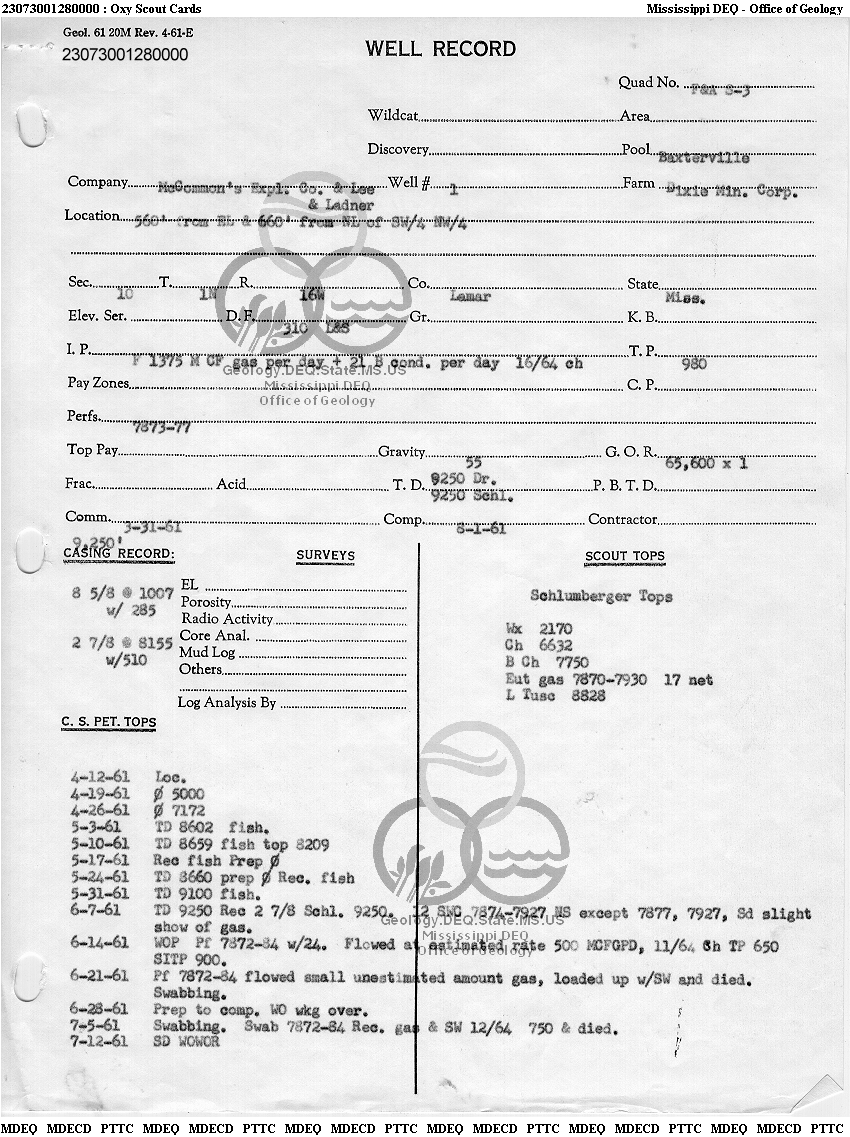 23073001280000 : Oxy Scout Cards Mississippi DEQ - Office of Geology
Geol. 61 20M Rev. 4-61-E
23073001280000
WELL RECORD
Quad No. P&A S-3
Wildcat Area
Discovery Pool Baxterville
Company McCommon's Expl. Co. & Lee Well # 1 Farm Dixie Min. Corp.
& Ladner
Location 560' from EL & 660' from NL of SW/4 NW/4
Sec. 10 T. 1N R. 16W Co. Lamar State Miss.
Elev. Ser. D.F. 310 L&S Gr. K. B.
I. P. F 1375 M CF gas per day + 21 B cond. per day 16/64 ch T. P. 980
Geology.DEQ.State.MS.US
Pay Zones Mississippi DEQ C. P.
Office of Geology
Perfs. 7873-77
Top Pay Gravity 55 G. O. R. 65,600 x 1
Frac. Acid T. D. 9250 Dr. P. B. T. D.
9250 Schl.
Comm. 3-31-61 Comp. 8-1-61 Contractor
9,250'
CASING RECORD: SURVEYS SCOUT TOPS
8 5/8 @ 1007
w/ 285
2 7/8 @ 8155
w/510
EL
Porosity
Radio Activity
Core Anal.
Mud Log
Others
Log Analysis By
Schlumberger Tops
Wx 2170
Ch 6632
B Ch 7750
Eut gas 7870-7930 17 net
L Tusc 8828
C. S. PET. TOPS
4-12-61 Loc.
4-19-61 Ø 5000
4-26-61 Ø 7172
5-3-61 TD 8602 fish.
5-10-61 TD 8659 fish top 8209
5-17-61 Rec fish Prep Ø
5-24-61 TD 8660 prep Ø Rec. fish
5-31-61 TD 9100 fish.
6-7-61 TD 9250 Rec 2 7/8 Schl. 9250. 12 SWC 7874-7927 NS except 7877, 7927, Sd slight
show of gas.
Geology.DEQ.State.MS.US
Mississippi DEQ
Office of Geology
6-14-61 WOP Pf 7872-84 w/24. Flowed at estimated rate 500 MCFGPD, 11/64 Ch TP 650
SITP 900.
6-21-61 Pf 7872-84 flowed small unestimated amount gas, loaded up w/SW and died.
Swabbing.
6-28-61 Prep to comp. WO wkg over.
7-5-61 Swabbing. Swab 7872-84 Rec. gas & SW 12/64 750 & died.
7-12-61 SD WOWOR
MDEQ MDECD PTTC MDEQ MDECD PTTC MDEQ MDECD PTTC MDEQ MDECD PTTC MDEQ MDECD PTTC MDEQ MDECD PTTC